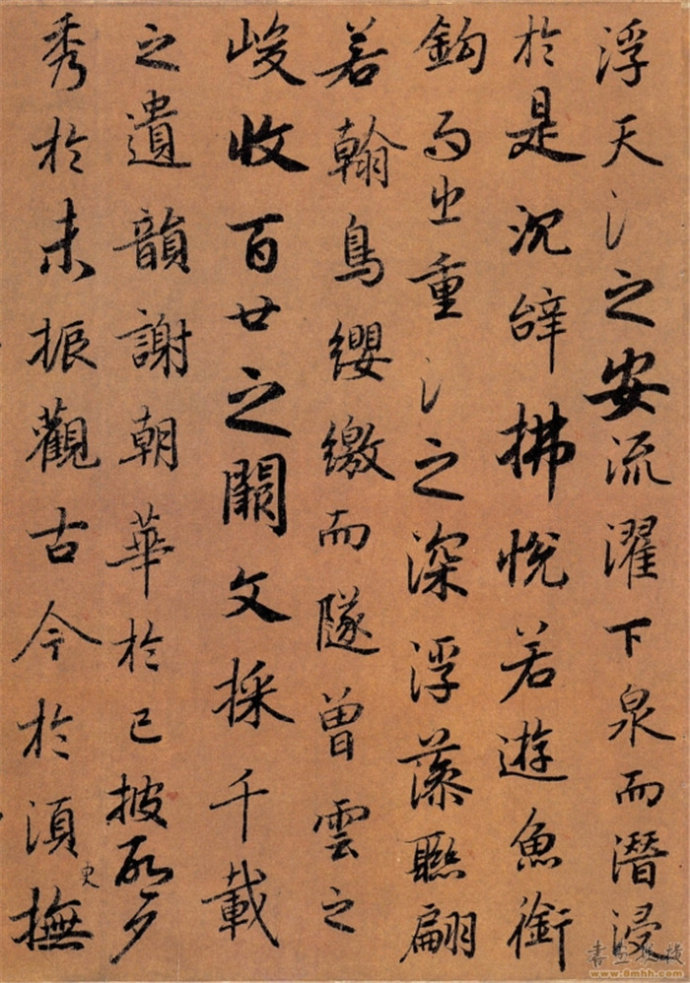 浮天氵之安流濯下泉而潛浸
於是沉辝拂悅若遊魚銜
鈎而出重氵之深浮藻聯翩
若翰鳥纓繳而隧曾雲之
峻收百廿之闕文採千載
之遺韻謝朝華於已披啓夕
秀於未振觀古今於須臾撫
www.8mhh.com